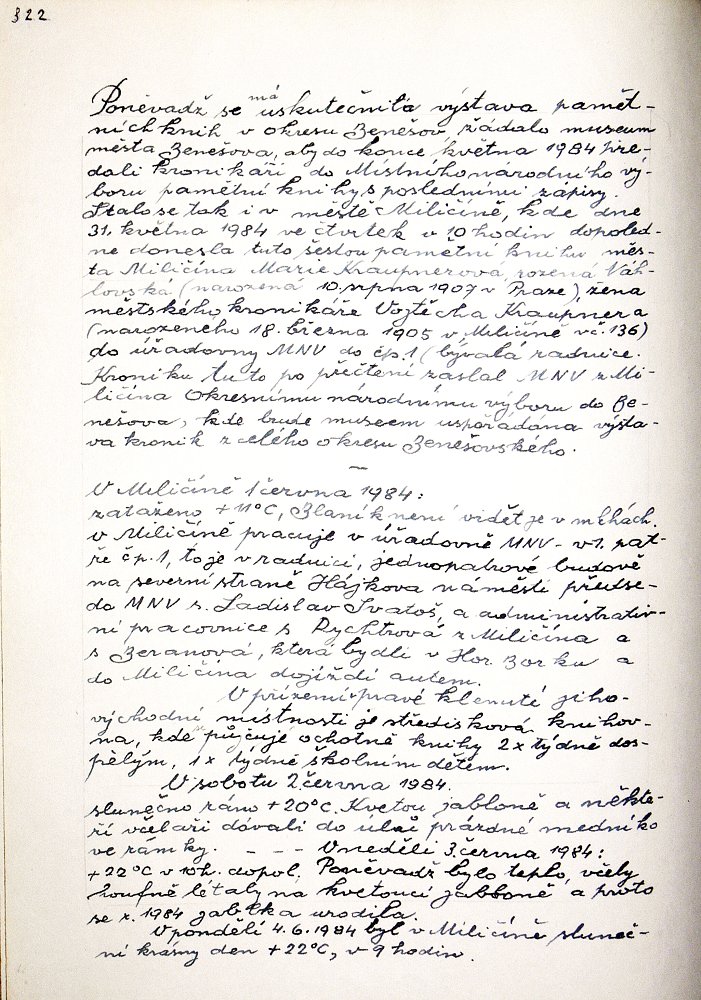 322
Poněvadž se má uskutečniťa výstava pamět-
ních knih v okresu Benešov, žádalo museum
města Benešova, aby do konce května 1984 pře-
dali kronikáři do Místního národního vý-
boru pamětní knihy s posledními zápisy.
Stalo se tak i v městě Miličíně, kde dne
31. května 1984 ve čtvrtek v 10 hodin dopoled-
ne donesla tuto šestou pamětní knihu měs-
ta Miličína Marie Kraupnerová, rozená Váh-
lovská (narozená 10. srpna 1907 v Praze), žena
městského kronikáře Vojtěcha Kraupnera
(narozeného 18. března 1905 v Miličíně v č. 136)
do úřadovny MNV do čp. 1 (bývalá radnice.
Kroniku tuto po přečtení zaslal MNV z Mi-
ličína Okresnímu národnímu výboru do Be-
nešova, kde bude museem uspořádána výsta-
va kronik z celého okresu Benešovského.
—
V Miličíně 1 června 1984:
zataženo +11°C, Blaník není vidět je v mlhách.
v Miličíně pracuje v úřadovně MNV - v 1. pat-
ře čp. 1, to je v radnici, jednopatrové budově
na severní straně Hájkova náměstí předse-
da MNV s. Ladislav Svatoš, a administrativ-
ní pracovnice s Rychtrová z Miličína a
s Beranová, která bydlí v Hor. Borku a
do Miličína dojíždí autem.
V přízemí pravé klenuté jiho-
východní místnosti je středisková knihov-
na, kde půjčuje ochotně knihy 2x týdně dos-
pělým, 1x týdně školním dětem.
V sobotu 2 června 1984.
slunečno ráno +20°C. Kvetou jabloně a někte-
ří včelaři dávali do úlů prázdné medníko
ve rámky. - - - V neděli 3. června 1984:
+22°C v 10h. dopol. Poněvadž bylo teplo, včely
houfně létaly na kvetoucí jabloně a proto
se r. 1984 jablka urodila.
V pondělí 4.6.1984 byl v Miličíně sluneč-
ní krásný den +22°C, v 9 hodin.